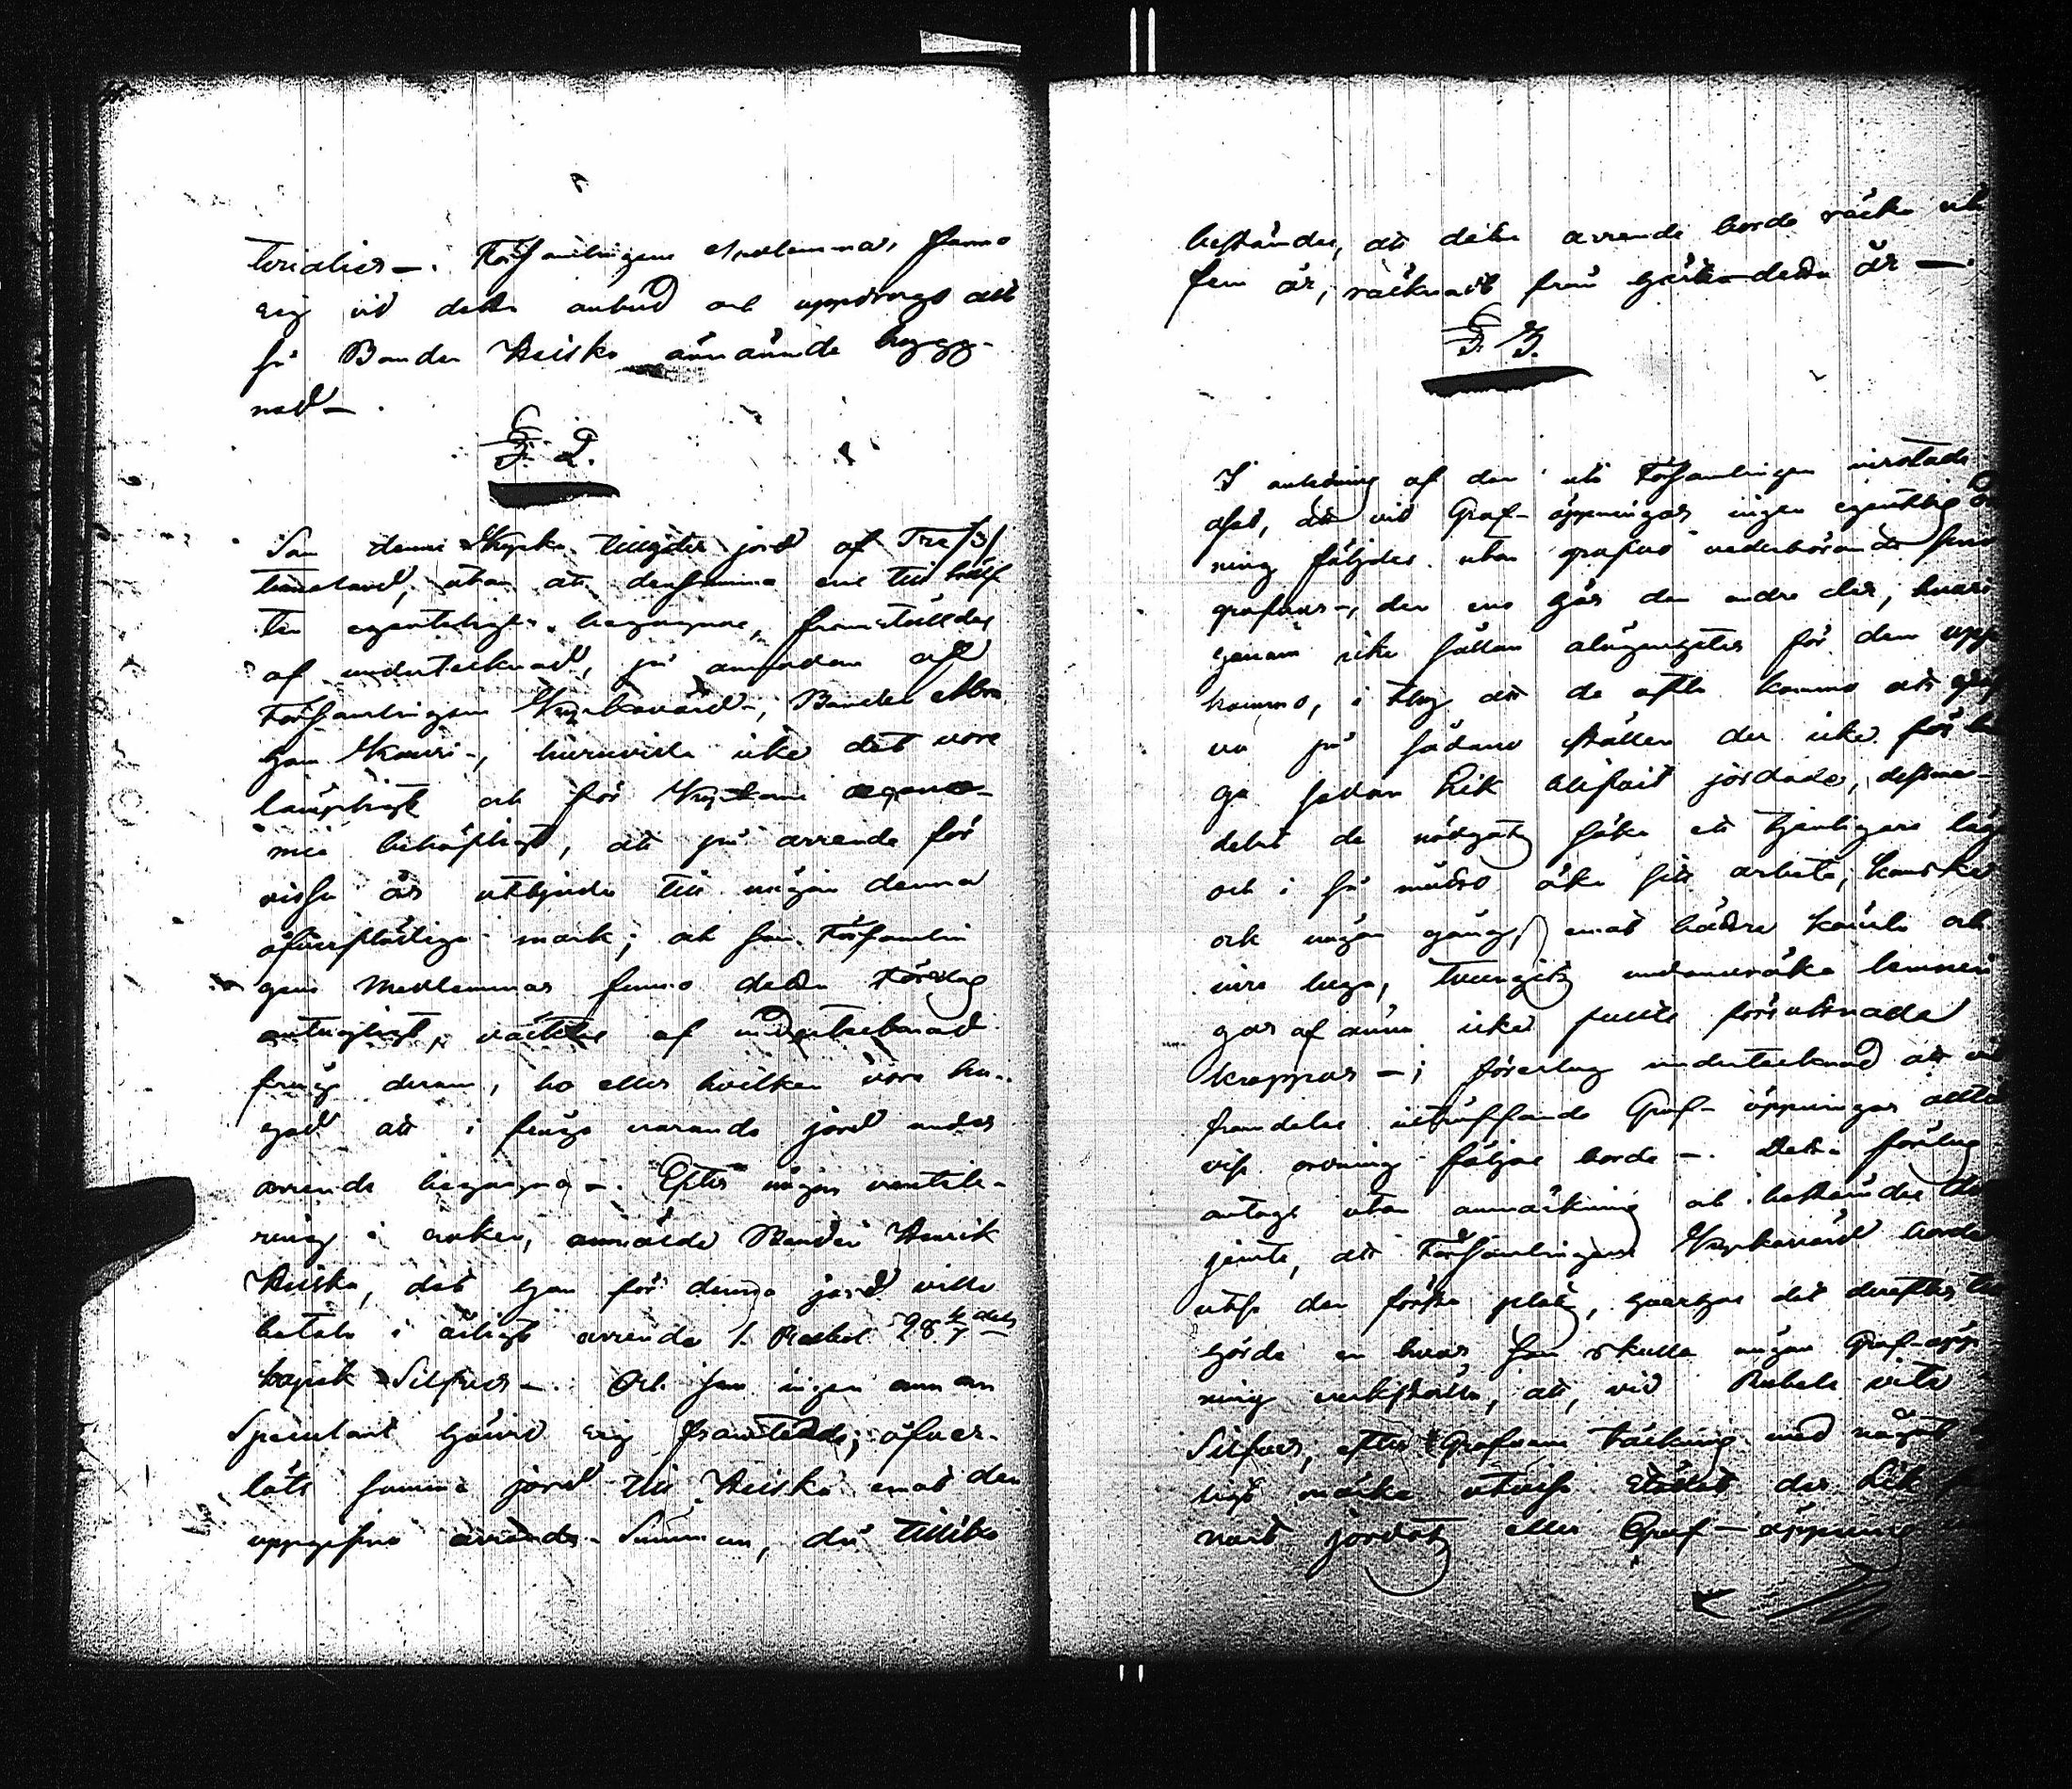 terialier –. Församlingens Medlemmar funno
sig vid detta anbud och uppdrogs att
så Bonden Heisko nämnde bygg-
nad –.
§. 2.
Som denna Kyrka tillydes jord af Tre /3/
tunneland, utan att densamma ens till hälf
ten egenteligen begagnas, framställdes
af undertecknad, på anmodan af
Församlingens Kyrkovärd –, Bonden Abra
ham Kauri –, huruvida icke det vore
lämpligt och för Kyrkans
behöfligt, att på arrende för
vissa år utbjuda till någon denna
öfverflödiga mark; och som Församlin
gens Medlemmar funno detta förslag
antagligt, väcktes af undertecknad
fråga derom, ho eller hvilken vore hu-
gad att i fråga varande jord under
arrende begagna –. Efter någon ventile-
ring i saken, anmälde Bonden Henrik
Heisko, det han för denna jord ville
betala i årligt arrende 1. Rubel 28 4/7 dels
kopek Silfver –. Och som ingen annan
Speculant härvid sig framstälde; öfver-
läts samma jord till Heisko emot den
uppgifna arrende-Summan, då tillika
bestämdes, att detta arrende borde räcka uti
fem år, räknadt från detta år –.
§ 3.
I anledning af den uti Församlingen
osed, att vid Graf-öppningar ingen egentlig
ning följdes utan grafvo vederbörande sina
grafvar –, den ena här den andra der, hvari
genom icke sällan olägenheter för dem upp
kommo, i ty att de ofta kommo att
va på sådana ställen der icke för
ge sedan Lik blifvit jordade, desme-
delst de nödgats söka ett tjenligare läge
och i så måtto öka sitt arbete, kanske
ock någon gång, emot bättre känsla och
inre lega, tvungits undansöka lemnin
gar af ännu icke fullt förruttnade
kroppar –; föreslog undertecknad att
framdeles inträffande Graf-öppningar
viss ordning följas borde –. Detta förslag
antogs utan anmärkning och bestämdes
jemte, att Församlingens Kyrkovärd borde
utse den första plats, hvarhos det derefter
hörde en hvar som skulle någon Graf-öpp-
ning verkställa, att, vid Rubels vite
Silfver, efter Grafvens täckning med något
ligt märke utvisa stället der Lik
vart jordat eller Graf-öppning